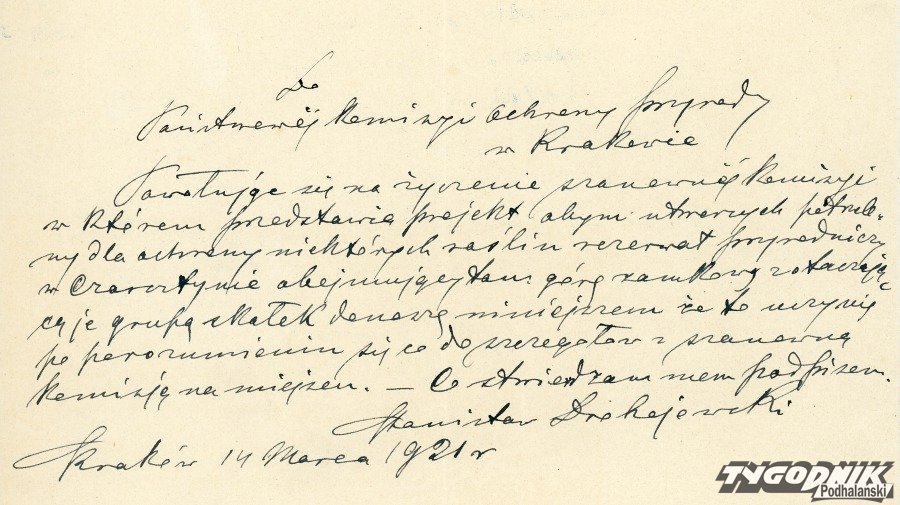 Do
Państwowéj Komisyi Ochrony Przyrody
w Krakowie
Powołując się na życzenie szanownéj Komisyi
w którem przedstawia projekt abym utworzył potrzeb-
ny dla ochrony niektórych roślin rezerwat przyrodniczy
w Czorsztynie obejmujący tam górę zamkową z otaczają-
cą je grupą skałek donoszę niniejszem że to uczynię
po porozumieniu się co do szczegółów z szanowną
Komisją na miejscu. — Co stwierdzam mem podpisem.
Stanisław Drohojewski
Kraków 14 Marca 1921 r
TYGODNIK
Podhalański